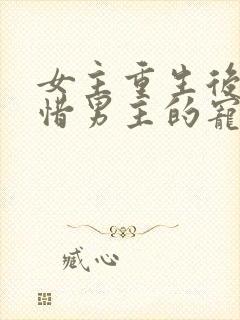 女主重生後
惜男主的寵
臧心